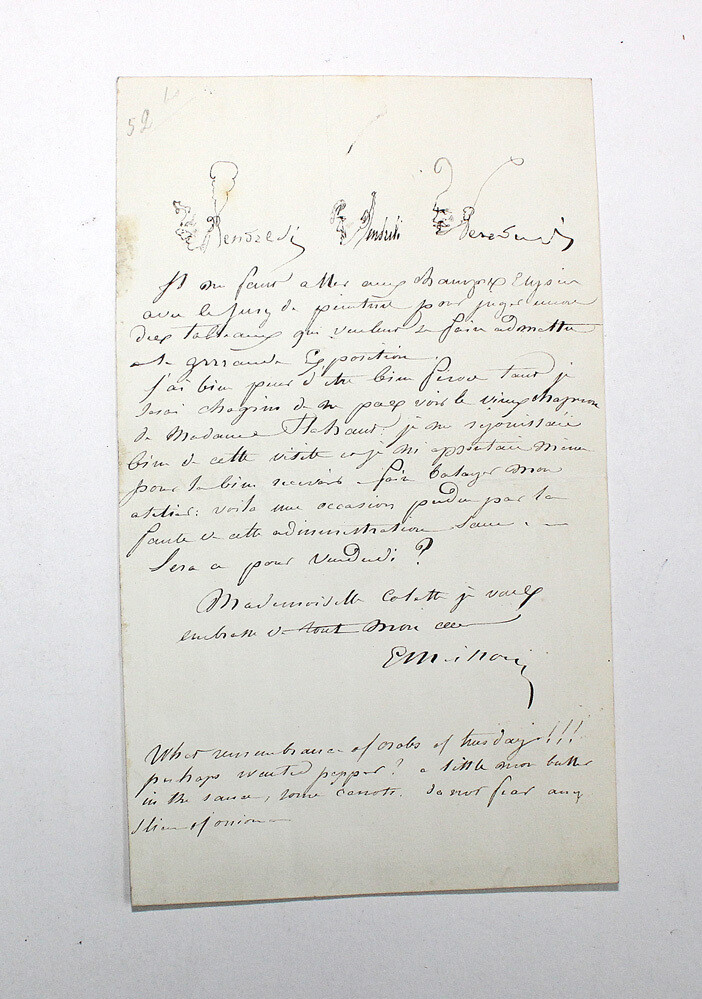 52
Vendredi Vendredi Vendredi
Il me faut aller aux Champs Elysées
avec le Jury de peinture pour juger encore
des tableaux qui veulent se faire admettre
à la grrrande Exposition.
J'ai bien peur d'être bien féroce tant je
serai chagrin de ne pas voir le vieux chaperon
de Madame je me rejouissais
bien de cette visite et je m'apprêtais même
pour la bien recevoir à faire balayer mon
atelier: voilà une occasion perdue par la
faute de cette administration
Sera ce pour Vendredi?
Mademoiselle Colette je vous
embrasse de tout mon cœur
EMeissonier
What remembrance of crabs of tuesday!!!
perhaps wanted pepper? a little more butter
in the sauce, some carrots. do not fear any
slice of onion